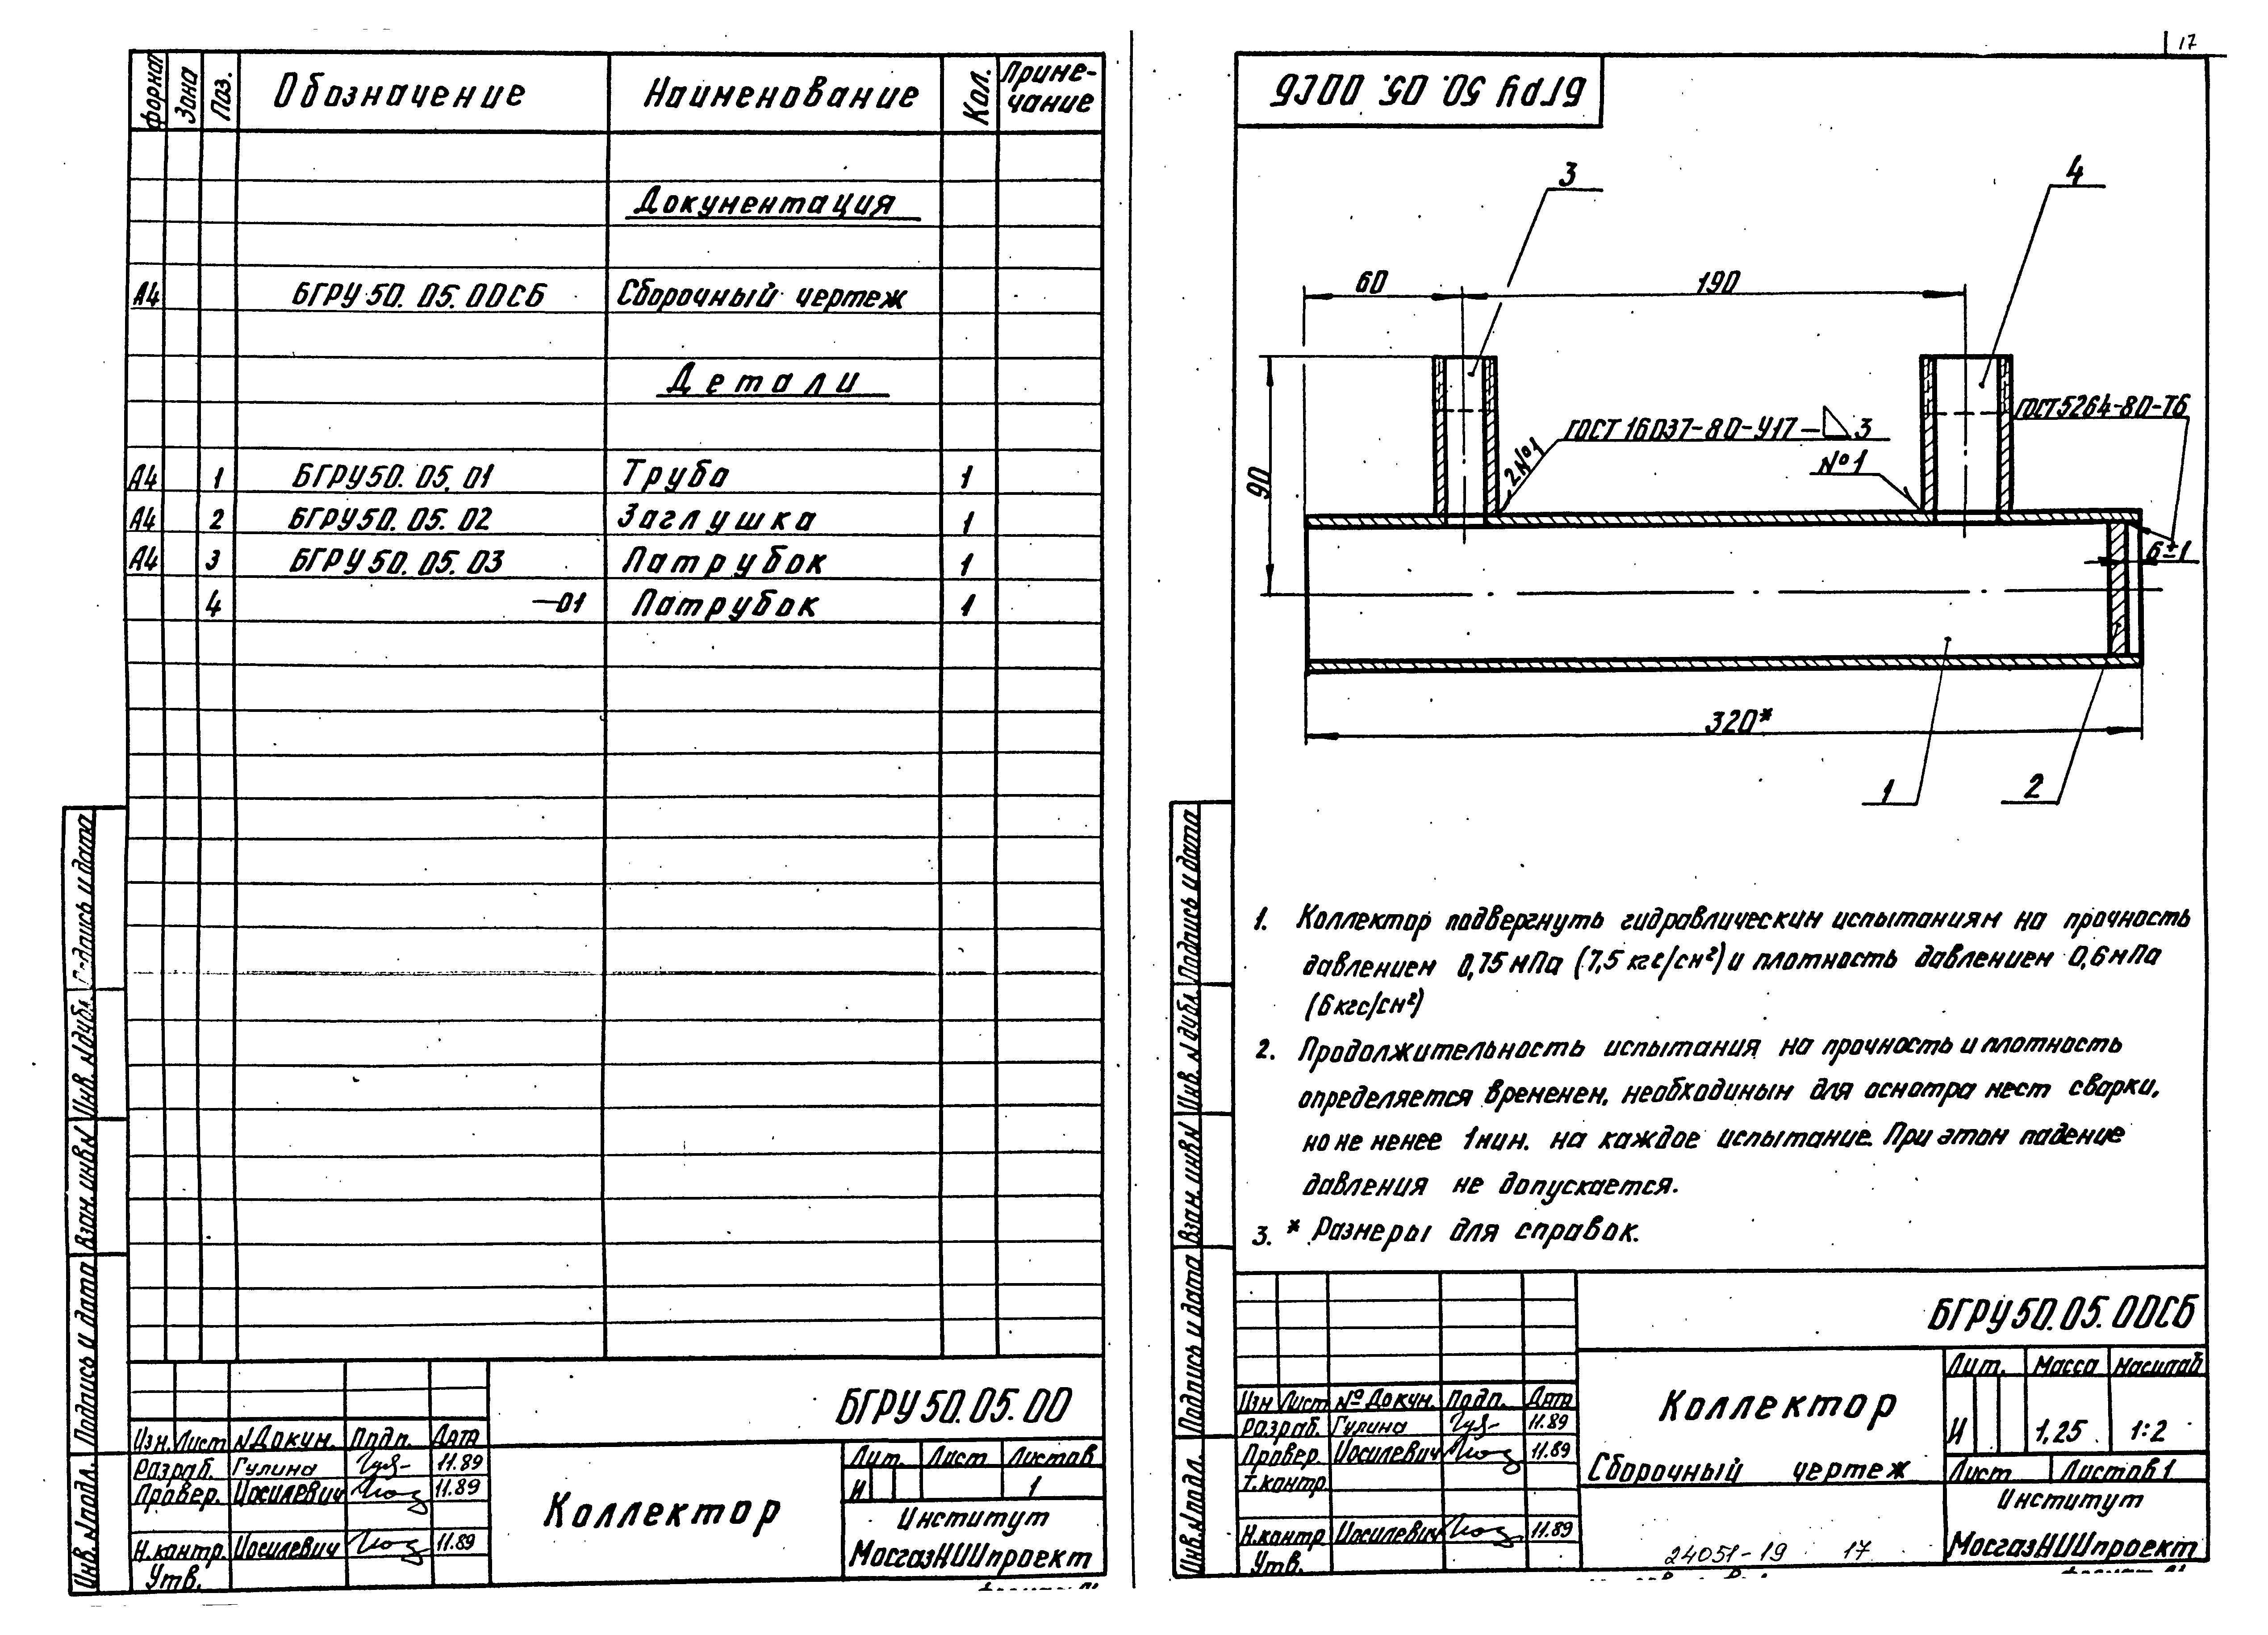 Формат Зона Поз. Обозначение Наименование Кол. Приме-
чание
Документация
А4 БГРУ50.05.00СБ Сборочный чертеж
Детали
А4 1 БГРУ50.05.01 Труба 1
А4 2 БГРУ50.05.02 Заглушка 1
А4 3 БГРУ50.05.03 Патрубок 1
4 —01 Патрубок 1
Подпись и дата
Инв. № дубл.
Взам. инв №
Подпись и дата
Инв. № подл.
БГРУ50.05.00
Изм. Лист № Докум. Подп. Дата
Разраб. Гулина 11.89
Провер. Иосилевич 11.89
Н.контр. Иосилевич 11.89
Утв.
Коллектор
Лит. Лист Листов
И 1
Институт
МосгазНИИпроект
17
БГРУ 50.05.00СБ
3
4
60
190
ГОСТ 5264-80-Т6
ГОСТ 16037-80-У17-◺3
2 №1
№1
90
6±1
320*
1
2
1. Коллектор подвергнуть гидравлическим испытаниям на прочность
давлением 0,75 мПа (7,5 кгс/см²) и плотность давлением 0,6 мПа
(6кгс/см²)
2. Продолжительность испытания на прочность и плотность
определяется временем, необходимым для осмотра мест сварки,
но не менее 1мин. на каждое испытание. При этом падение
давления не допускается.
3. * Размеры для справок.
Подпись и дата
Инв. № дубл.
Взам. инв №
Подпись и дата
Инв. № подл.
БГРУ50.05.00СБ
Изм Лист № Докум. Подп. Дата
Разраб. Гулина 11.89
Провер. Иосилевич 11.89
Т.контр
Н.контр Иосилевич 11.89
Утв.
Коллектор
Сборочный чертеж
Лит. Масса Масштаб
И 1,25 1:2
Лист Листов 1
Институт
МосгазНИИпроект
24051-19 17